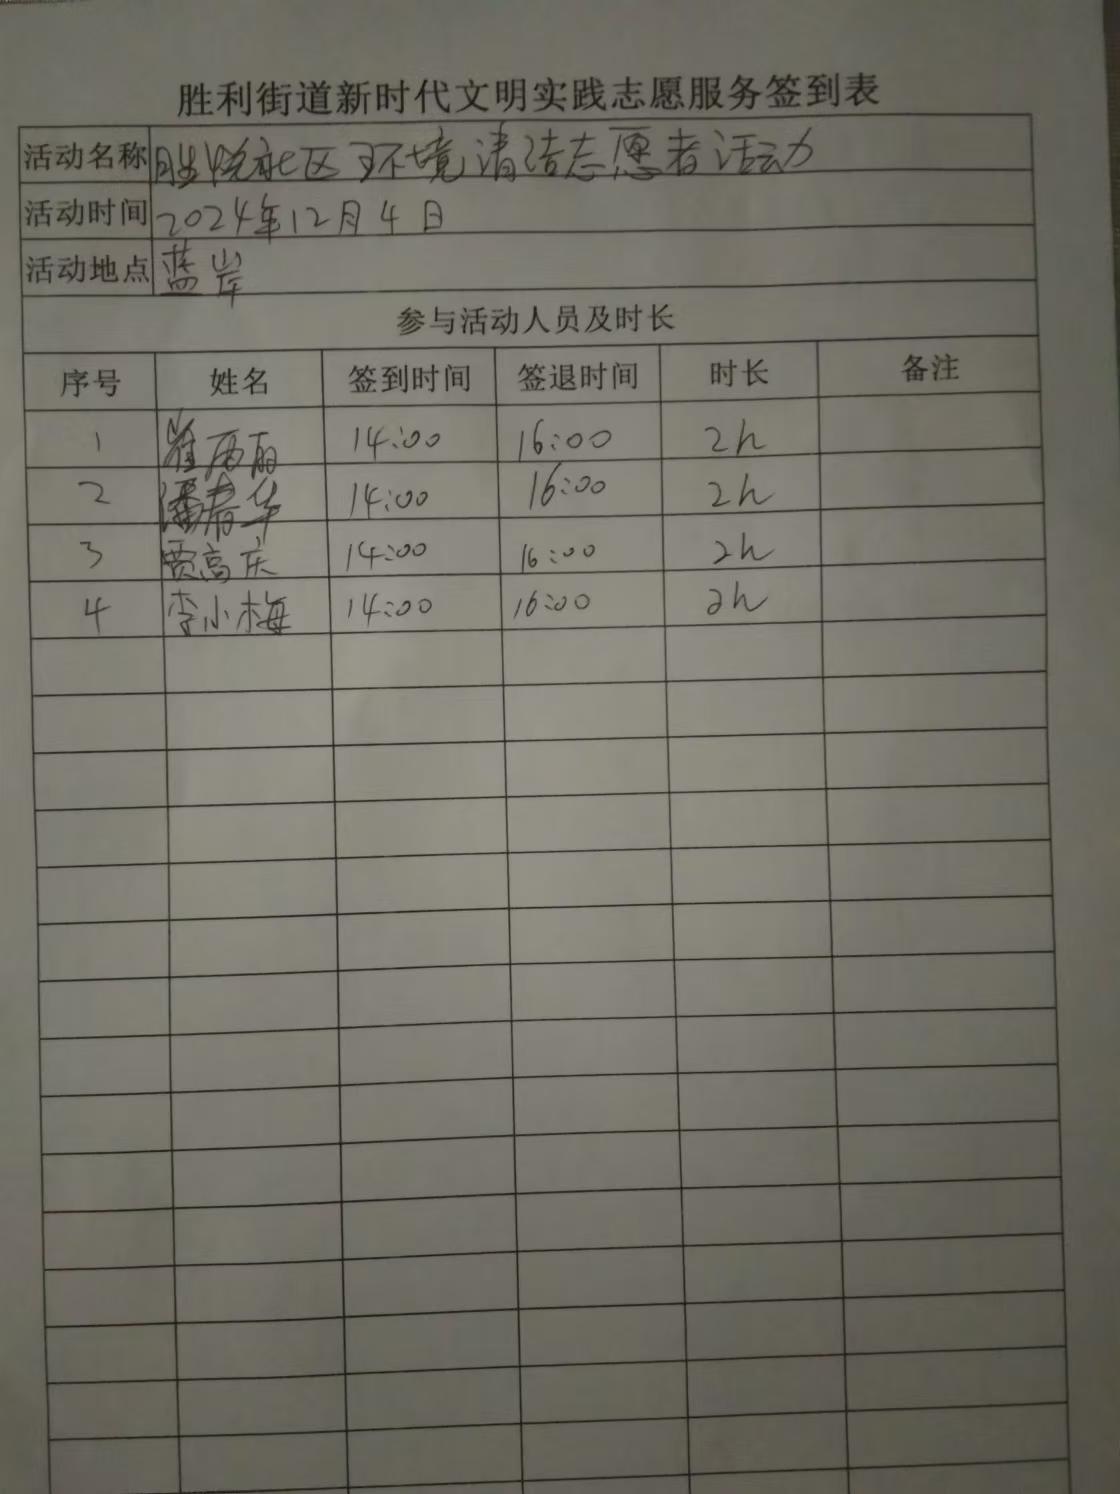 胜利街道新时代文明实践志愿服务签到表
活动名称 胜悦社区环境清洁志愿者活动
活动时间 2024年12月4日
活动地点 蓝岸
参与活动人员及时长
序号 姓名 签到时间 签退时间 时长 备注
1 崔丽丽 14:00 16:00 2h
2 潘春华 14:00 16:00 2h
3 贾高庆 14:00 16:00 2h
4 李小梅 14:00 16:00 2h